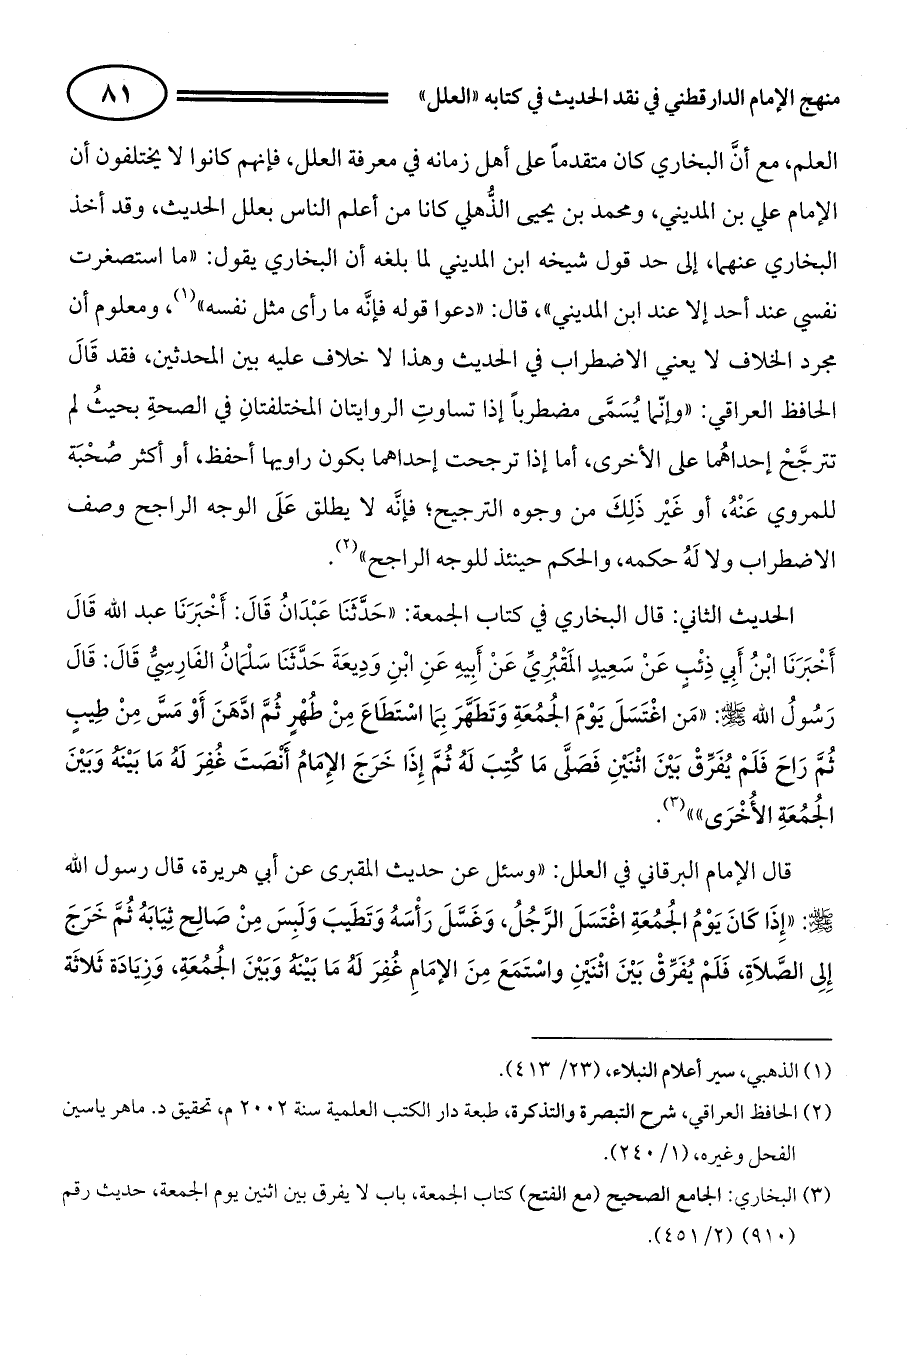 منهج الإمام الدارقطني في نقد الحديث في كتابه «العلل» ٨١
العلم، مع أنَّ البخاري كان متقدماً على أهل زمانه في معرفة العلل، فإنهم كانوا لا يختلفون أن
الإمام علي بن المديني، ومحمد بن يحيى الذُّهلي كانا من أعلم الناس بعلل الحديث، وقد أخذ
البخاري عنهما، إلى حد قول شيخه ابن المديني لما بلغه أن البخاري يقول: «ما استصغرت
نفسي عند أحد إلا عند ابن المديني»، قال: «دعوا قوله فإنَّه ما رأى مثل نفسه»(١)، ومعلوم أن
مجرد الخلاف لا يعني الاضطراب في الحديث وهذا لا خلاف عليه بين المحدثين، فقد قَالَ
الحافظ العراقي: «وإنَّما يُسَمَّى مضطرباً إذا تساوتِ الروايتان المختلفتانِ في الصحةِ بحيثُ لم
تترجَّحْ إحداهُما على الأخرى، أما إذا ترجحت إحداهما بكون راويها أحفظ، أو أكثر صُحْبَة
للمروي عَنْهُ، أو غَيْر ذَلِكَ من وجوه الترجيح؛ فإنَّه لا يطلق عَلَى الوجه الراجح وصف
الاضطراب ولا لَهُ حكمه، والحكم حينئذ للوجه الراجح»(٢).
الحديث الثاني: قال البخاري في كتاب الجمعة: «حَدَّثَنَا عَبْدَانُ قَالَ: أَخْبَرَنَا عبد الله قَالَ
أَخْبَرَنَا ابْنُ أَبِي ذِئْبٍ عَنْ سَعِيدٍ المَقْبُرِيِّ عَنْ أَبِيهِ عَنِ ابْنِ وَدِيعَةَ حَدَّثَنَا سَلْمَانُ الفَارِسِيُّ قَالَ: قَالَ
رَسُولُ الله ﷺ: «مَن اغْتَسَلَ يَوْمَ الجُمُعَةِ وَتَطَهَّرَ بِمَا اسْتَطَاعَ مِنْ طُهْرٍ ثُمَّ ادَّهَنَ أَوْ مَسَّ مِنْ طِيبٍ
ثُمَّ رَاحَ فَلَمْ يُفَرِّقْ بَيْنَ اثْنَيْنِ فَصَلَّى مَا كُتِبَ لَهُ ثُمَّ إِذَا خَرَجَ الإِمَامُ أَنْصَتَ غُفِرَ لَهُ مَا بَيْنَهُ وَبَيْنَ
الجُمُعَةِ الأُخْرَى»»(٣).
قال الإمام البرقاني في العلل: «وسئل عن حديث المقبرى عن أبي هريرة، قال رسول الله
ﷺ: «إِذَا كَانَ يَوْمُ الجُمُعَةِ اغْتَسَلَ الرَّجُلُ، وَغَسَّلَ رَأْسَهُ وَتَطَيَبَ وَلَبِسَ مِنْ صَالِحِ ثِيَابَهُ ثُمَّ خَرَجَ
إِلى الصَّلاَةِ، فَلَمْ يُفَرِّقْ بَيْنَ اثْنَيْنِ واسْتَمَعَ مِنَ الإمَامِ غُفِرَ لَهُ مَا بَيْنَهُ وَبَيْنَ الجُمُعَةِ، وَزِيَادَة ثَلاَثَة
(١) الذهبي، سير أعلام النبلاء، (٢٣/ ٤١٣).
(٢) الحافظ العراقي، شرح التبصرة والتذكرة، طبعة دار الكتب العلمية سنة ٢٠٠٢ م، تحقيق د. ماهر ياسين
الفحل وغيره، (١/ ٢٤٠).
(٣) البخاري: الجامع الصحيح (مع الفتح) كتاب الجمعة، باب لا يفرق بين اثنين يوم الجمعة، حديث رقم
(٩١٠) (٢/ ٤٥١).